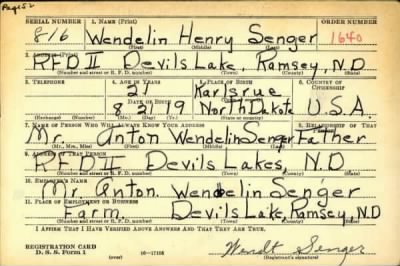 Page 52
SERIAL NUMBER 1. NAME (Print) ORDER NUMBER
816 Wendelin Henry Senger 1640
(First) (Middle) (Last)
2. ADDRESS (Print)
RFD II Devils Lake, Ramsey, N.D
(Number and street or R. F. D. number) (Town) (County) (State)
3. TELEPHONE 4. AGE IN YEARS 5. PLACE OF BIRTH 6. COUNTRY OF CITIZENSHIP
21 Karlsrue
DATE OF BIRTH
8 21 19 North Dakota U.S.A.
(Exchange) (Number) (Mo.) (Day) (Yr.) (State or country)
7. NAME OF PERSON WHO WILL ALWAYS KNOW YOUR ADDRESS 8. RELATIONSHIP OF THAT PERSON
Mr. Anton Wendelin Senger Father
(Mr., Mrs., Miss) (First) (Middle) (Last)
9. ADDRESS OF THAT PERSON
RFD II Devils Lakes, N.D
(Number and street or R. F. D. number) (Town) (County) (State)
10. EMPLOYER'S NAME
Mr. Anton. Wendelin Senger
11. PLACE OF EMPLOYMENT OR BUSINESS
Farm. Devils Lake, Ramsey, N.D
(Number and street or R. F. D. number) (Town) (County) (State)
I AFFIRM THAT I HAVE VERIFIED ABOVE ANSWERS AND THAT THEY ARE TRUE.
REGISTRATION CARD
D. S. S. Form 1 (over) 16-17105 Wendt Senger
(Registrant's signature)